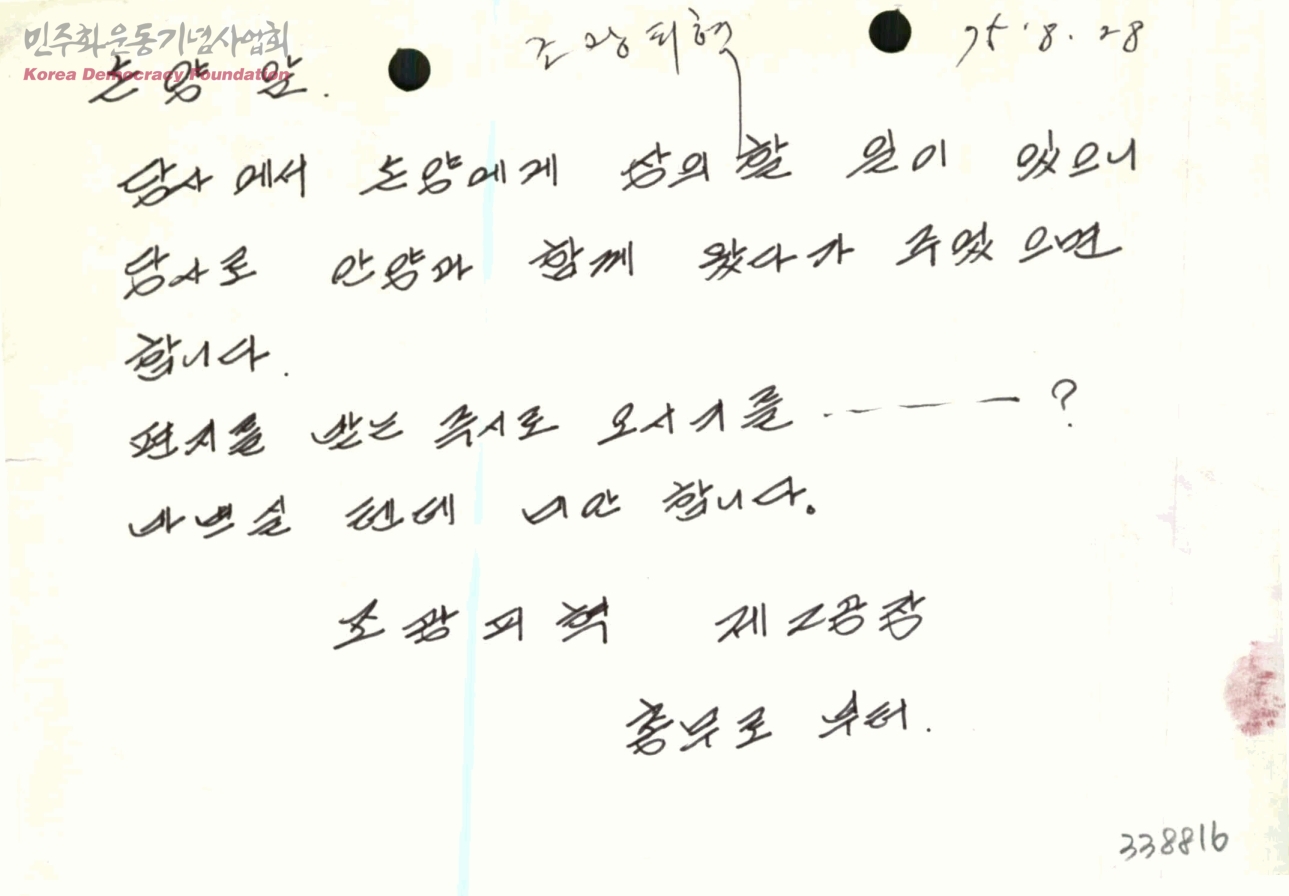 민주화운동기념사업회
Korea Democracy Foundation
조광피혁 75.8.28
손양 앞.
당사에서 손양에게 상의할 일이 있으니
당사로 안양과 함께 왔다가 주었으면
합니다.
편지를 받는 즉시로 오시기를 ----- ?
바쁘실 텐데 미안 합니다.
조광피혁 제2공장
총무로 부터.
338816